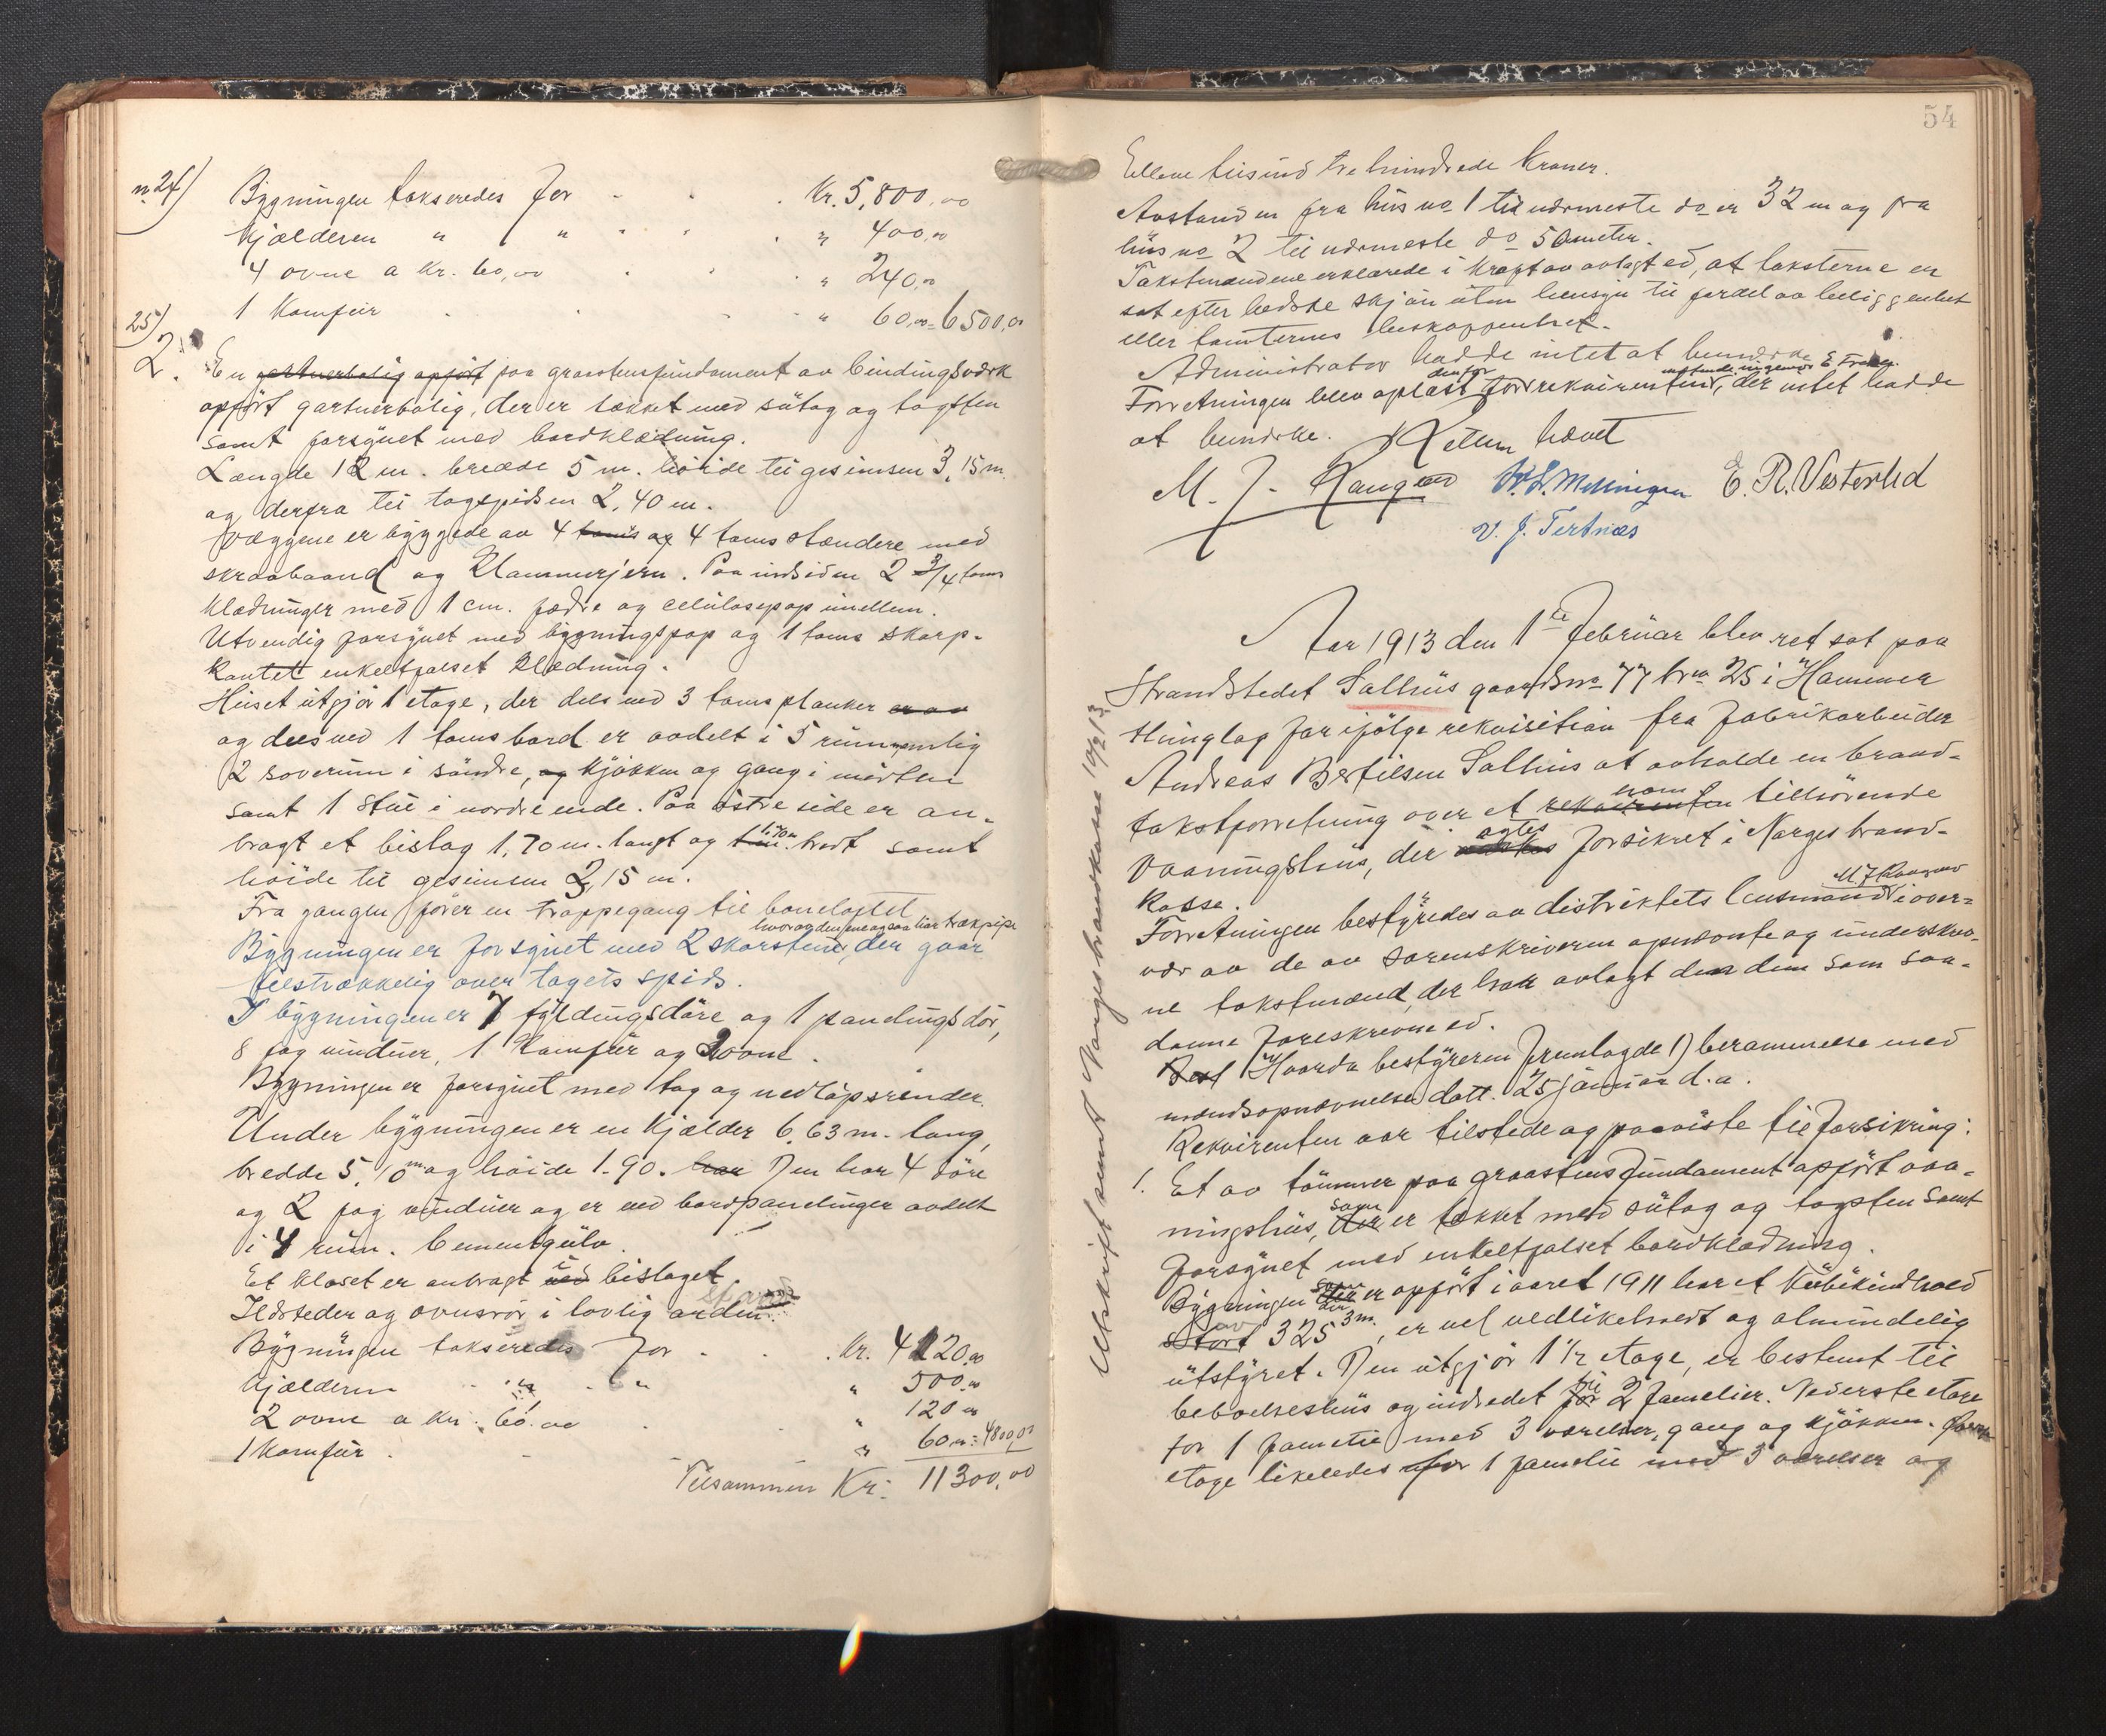 no 24) Bygningen takseredes for . . . Kr. 5,800,00
Kjælderen " " . . . " 400,00
4 ovne a Kr. 60,00 . . . " 240,00
1 Komfür . . . " 60,00 = 6500,00
25)
2. En gartnerbolig opført paa graastensfundament av bindingsværk
opført gartnerbolig, der er tækket med sütag og tagsten
samt forsynet med bordklædning.
Længde 12 m. bredde 5 m. høide til gesimsen 3,15 m.
og derfra til tagspidsen 2,40 m.
Væggene er byggede av 4 toms og 4 toms stændere med
skraabaand og Klammerjern. Paa indsiden 2 3/4 toms
klædninger med 1 cm. fødre og celülosepap imellem.
Utvendig forsynet med bygningspap og 1 toms skarp-
kantet enkeltfalset klædning.
Hüset ütgjør 1 etage, der dels ved 3 toms planker er av
og dels ved 1 toms bord er avdelt i 5 rüm nemlig
2 soverüm i søndre, og kjøkken og gang i midten
samt 1 stüe i nordre ende. Paa østre side er an-
bragt et bislag 1,70 m. langt og 1 m. 1,70 m bredt samt
høide til gesimsen 2,15 m.
Fra gangen fører en trappegang til loneloftet
hvorav den ene ogsaa har trækpipe
Bygningen er forsynet med 2 skorstene, der gaar
tilstrækkelig over tagets spids.
I bygningen er 7 fyldingsdøre og 1 panelingsdør,
8 fag vindüer, 1 Komfür og 2 ovne.
Bygningen er forsynet med tag og nedløpsrender.
Under bygningen er en Kjælder 6,63 m. lang,
bredde 5,10 m og høide 1.90. har Den har 4 døre
og 2 fag vindüer og er ved bordpanelinger avdelt
i 4 rüm. Cementgülv.
Et kloset er anbragt ved i bislaget
Ildsteder og ovnsrør i lovlig orden.
Bygningen takseredes for . . . Kr. 4120,00
Kjælderen " " " 500,00
2 ovne a Kr. 60.00 . . " 120,00
1 Komfür . . " 60,00 = 4800,00
Tilsammen Kr. 11300,00
54
Elleve tüsind tre hündrede Kroner.
Avstanden fra hüs no 1 til nærmeste do er 32 m og fra
hüs no 2 til nærmeste do 50 meter.
Takstmændene erklærede i kraft av avlagt ed, at taksterne er
sat efter bedste skjøn üten hensyn til fordel av beliggenhet
eller tomternes beskaffenhet.
Administrator hadde intet at bemerke
Forretningen blev oplæst den for for rekvirenten møtende ingeniør E , der intet hadde
at bemerke. Retten hævet
M. J. Haugen W. L. Mellingen E. R. Vesterlid
V. J. Tertnæs
Aar 1913 den 1ste Februar blev ret sat paa
Strandstedet Salhüs gaardsno 77 brno 25 i Hammer
thinglag for ifølge rekvisition fra fabrikarbeider
Andreas Bertilsen Salhüs at avholde en brand-
takstforretning over et rekvirenten ham tilhørende
Vaaningshüs, der agtes forsikret i Norges brand-
kasse.
Forretningen bestyredes av distriktets lensmand M J Haugen i over-
vær av de av sorenskriveren opnævnte og underskrev-
ne takstmænd, der har avlagt den dem som saa-
danne foreskrevne ed.
Best Hvorda bestyreren fremlagde 1) berammelse med
mændsopnævnelse datt. 25 januar d.a.
Rekvirenten var tilstede og paaviste til forsikring:
1. Et av tømmer paa graastensfundament opført vaa-
ningshüs, der som er tækket med sütag og tagsten samt
forsynet med enkeltfalset bordklædning.
Bygningen der som er opført i aaret 1911 har et kübikindhold
stort av 325 3m., er vel vedlikeholdt og almindelig
ütstyret. Den ütgjør 1 1/2 etage, er bestemt til
beboelseshüs og indredet for til 2 familier. Nederste etage
for 1 familie med 3 værelser, gang og kjøkken.
etage likeledes for 1 familie med 3 værelser og
Utskrift sendt Norges brandkasse 10/2 13.